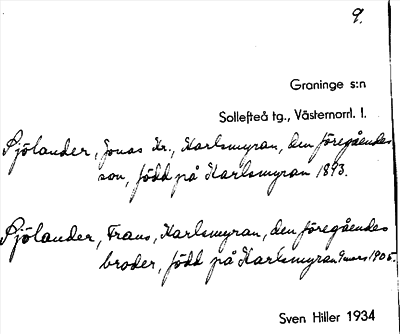 9.
Graninge s:n
Sollefteå tg., Västernorrl. l.
Sjölander, Jonas Kr., Karlsmyran, den föregåendes
son, född på Karlsmyran 1893.
Sjölander, Frans, Karlsmyran, den föregåendes
broder, född på Karlsmyran 9 mars 1905.
Sven Hiller 1934